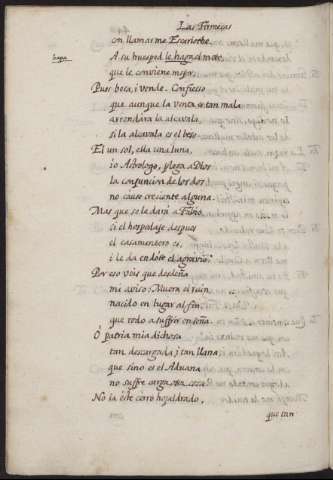 Las Firmeças
con llamarme Escariothe.
haga
A su huesped le haga el mote,
que le conviene mejor.
Pues besa, i vende. Confiesso
que aunque la venta es tan mala
arrendàra la alcavala,
si la alcavala es el beso.
El un sol, ella una luna,
io Astrologo, plega a Dios
la conjuncion de los dos
no cause creciente alguna.
Mas que se le dara a Fabio
si el hospedaje despues
el casamentero es,
i le da en dote el agravio?
Por eso vòis que desdeña
mi aviso? Muera el ruin
nacido en lugar al fin,
que todo a suffrir enseña.
O patria mia dichosa
tan descargada, i tan llana;
que sino es el Aduana
no suffre carga otra cosa.
No ia este cerro hojaldrado,
que tan